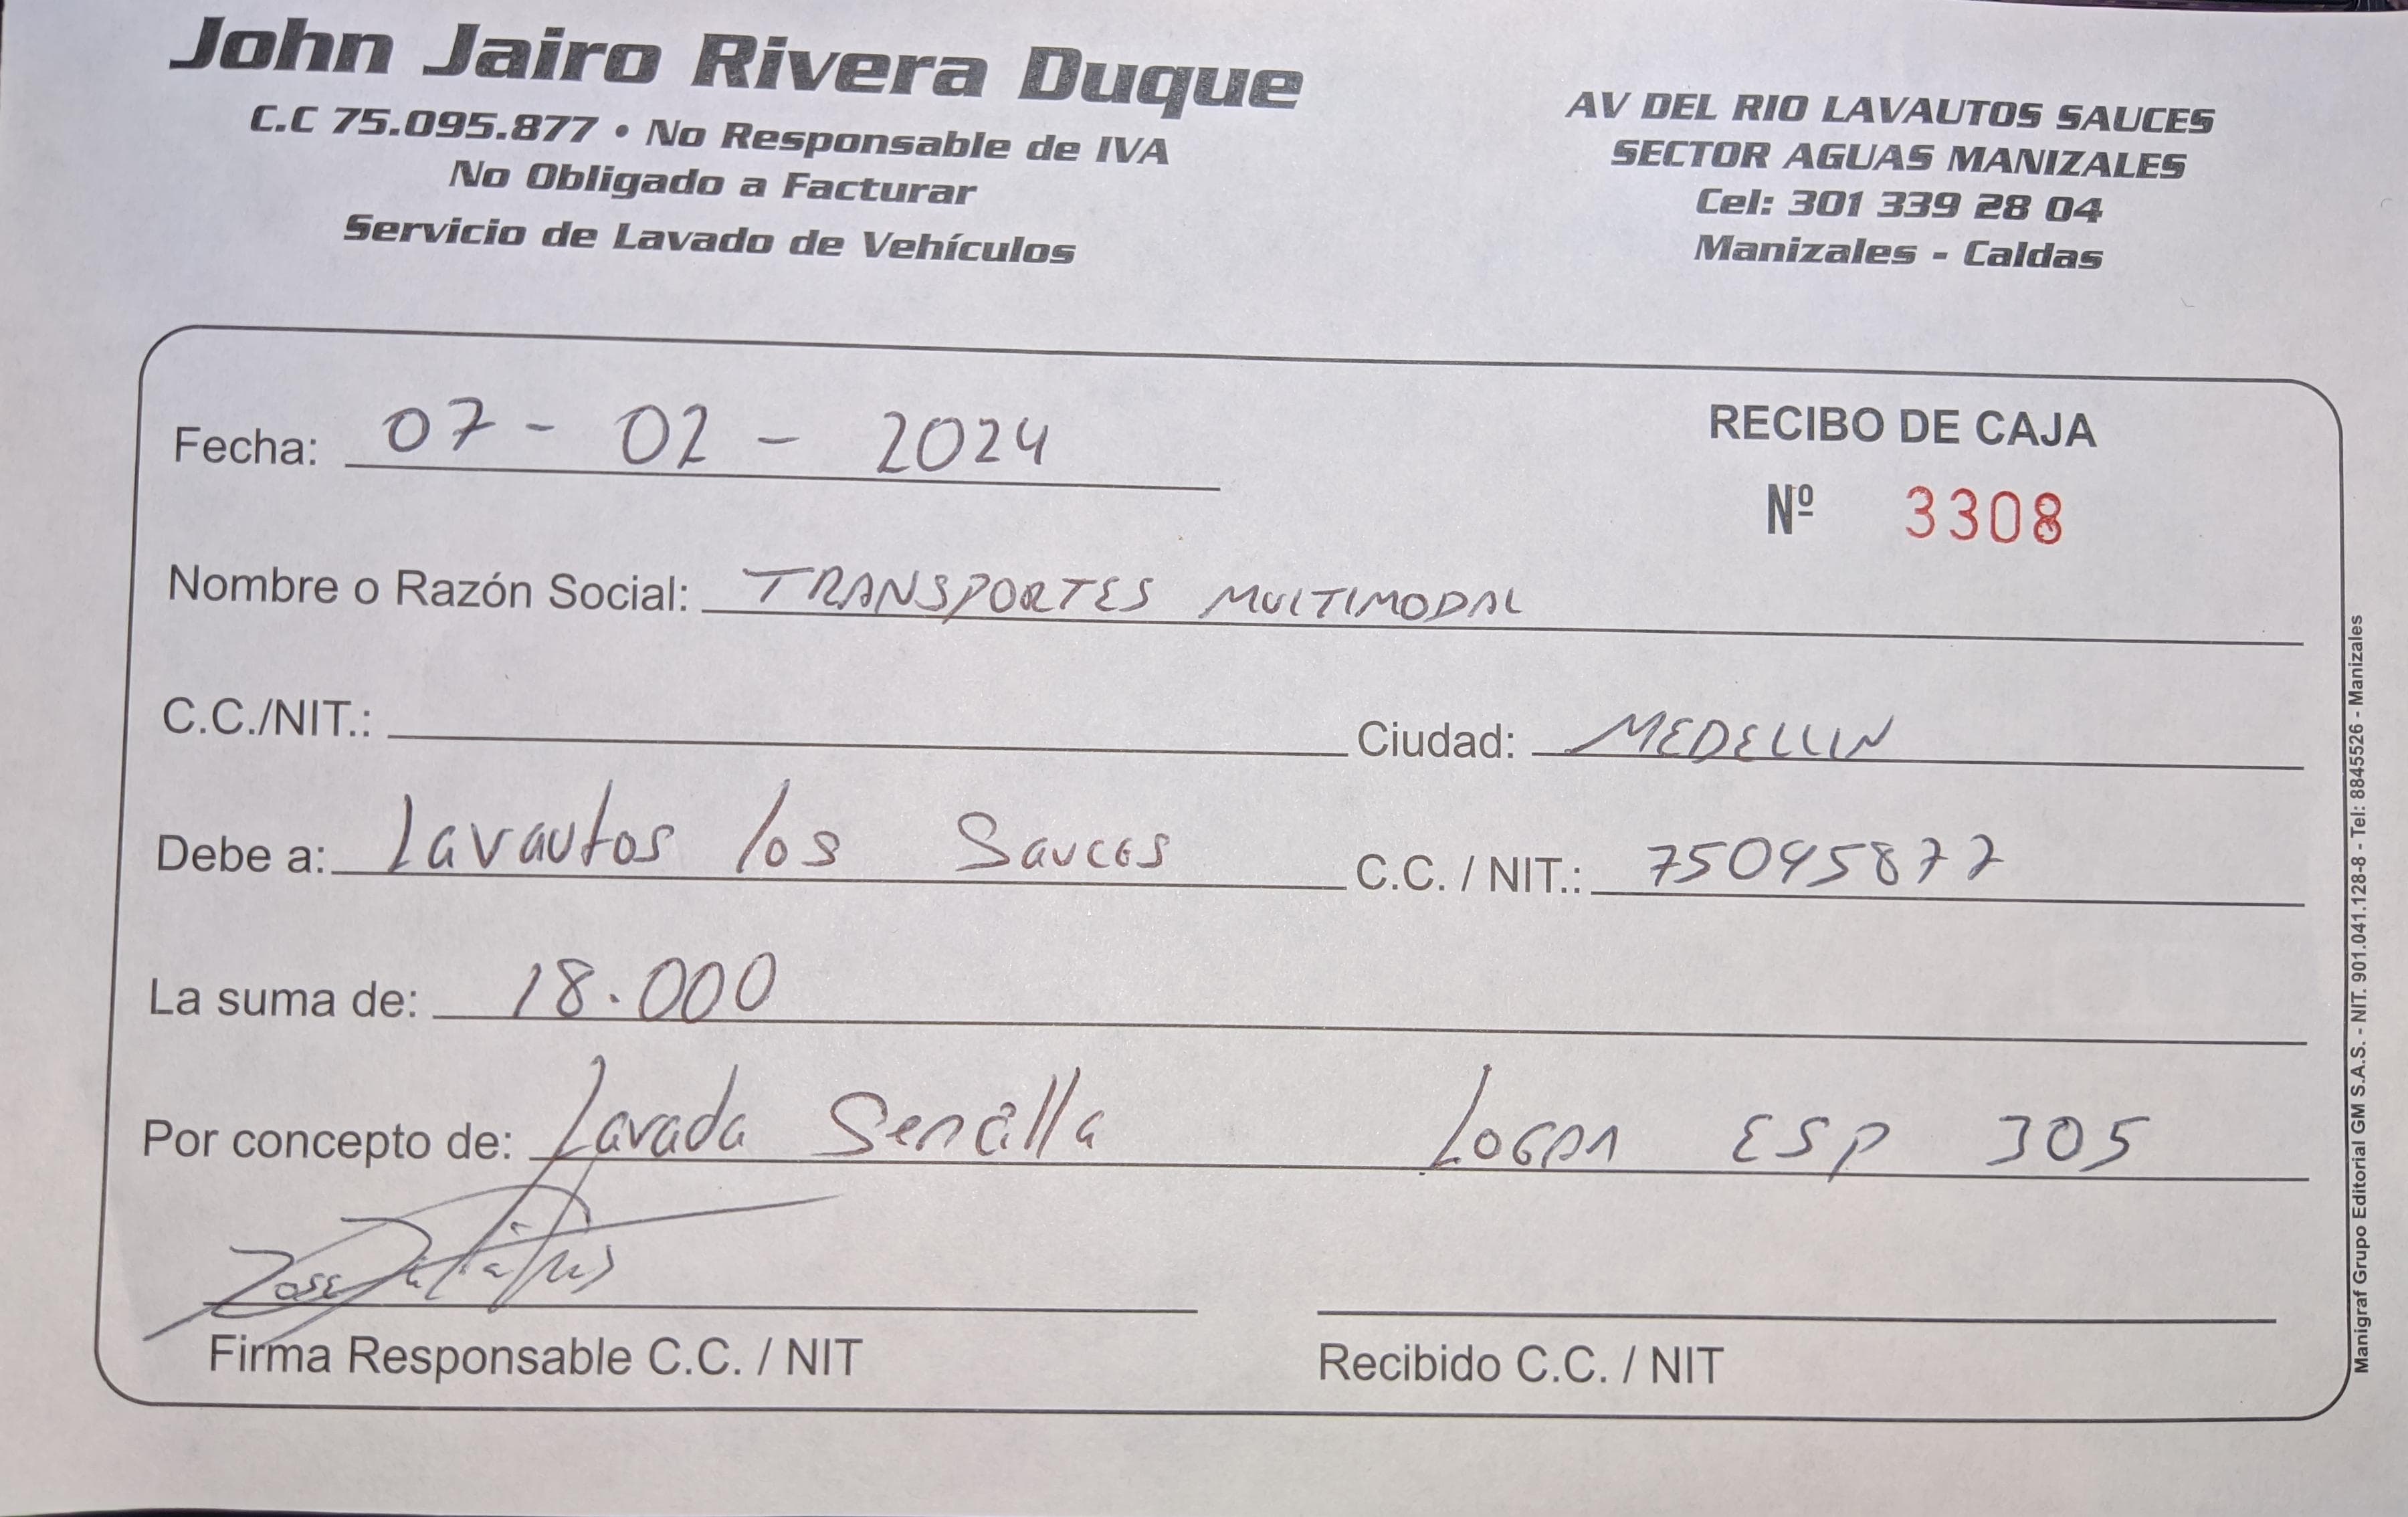 John Jairo Rivera Duque
C.C 75.095.877 • No Responsable de IVA
No Obligado a Facturar
Servicio de Lavado de Vehículos
AV DEL RIO LAVAUTOS SAUCES
SECTOR AGUAS MANIZALES
Cel: 301 339 28 04
Manizales - Caldas
Fecha: 07 - 02 - 2024
RECIBO DE CAJA
Nº 3308
Nombre o Razón Social: TRANSPORTES MULTIMODAL
C.C./NIT.: Ciudad: MEDELLIN
Debe a: Lavautos los Sauces C.C. / NIT.: 75095877
La suma de: 18.000
Por concepto de: Lavada Sencilla LOGAN ESP 305
Firma Responsable C.C. / NIT Recibido C.C. / NIT
Manigraf Grupo Editorial GM S.A.S. - NIT. 901.041.128-8 - Tel: 8845526 - Manizales